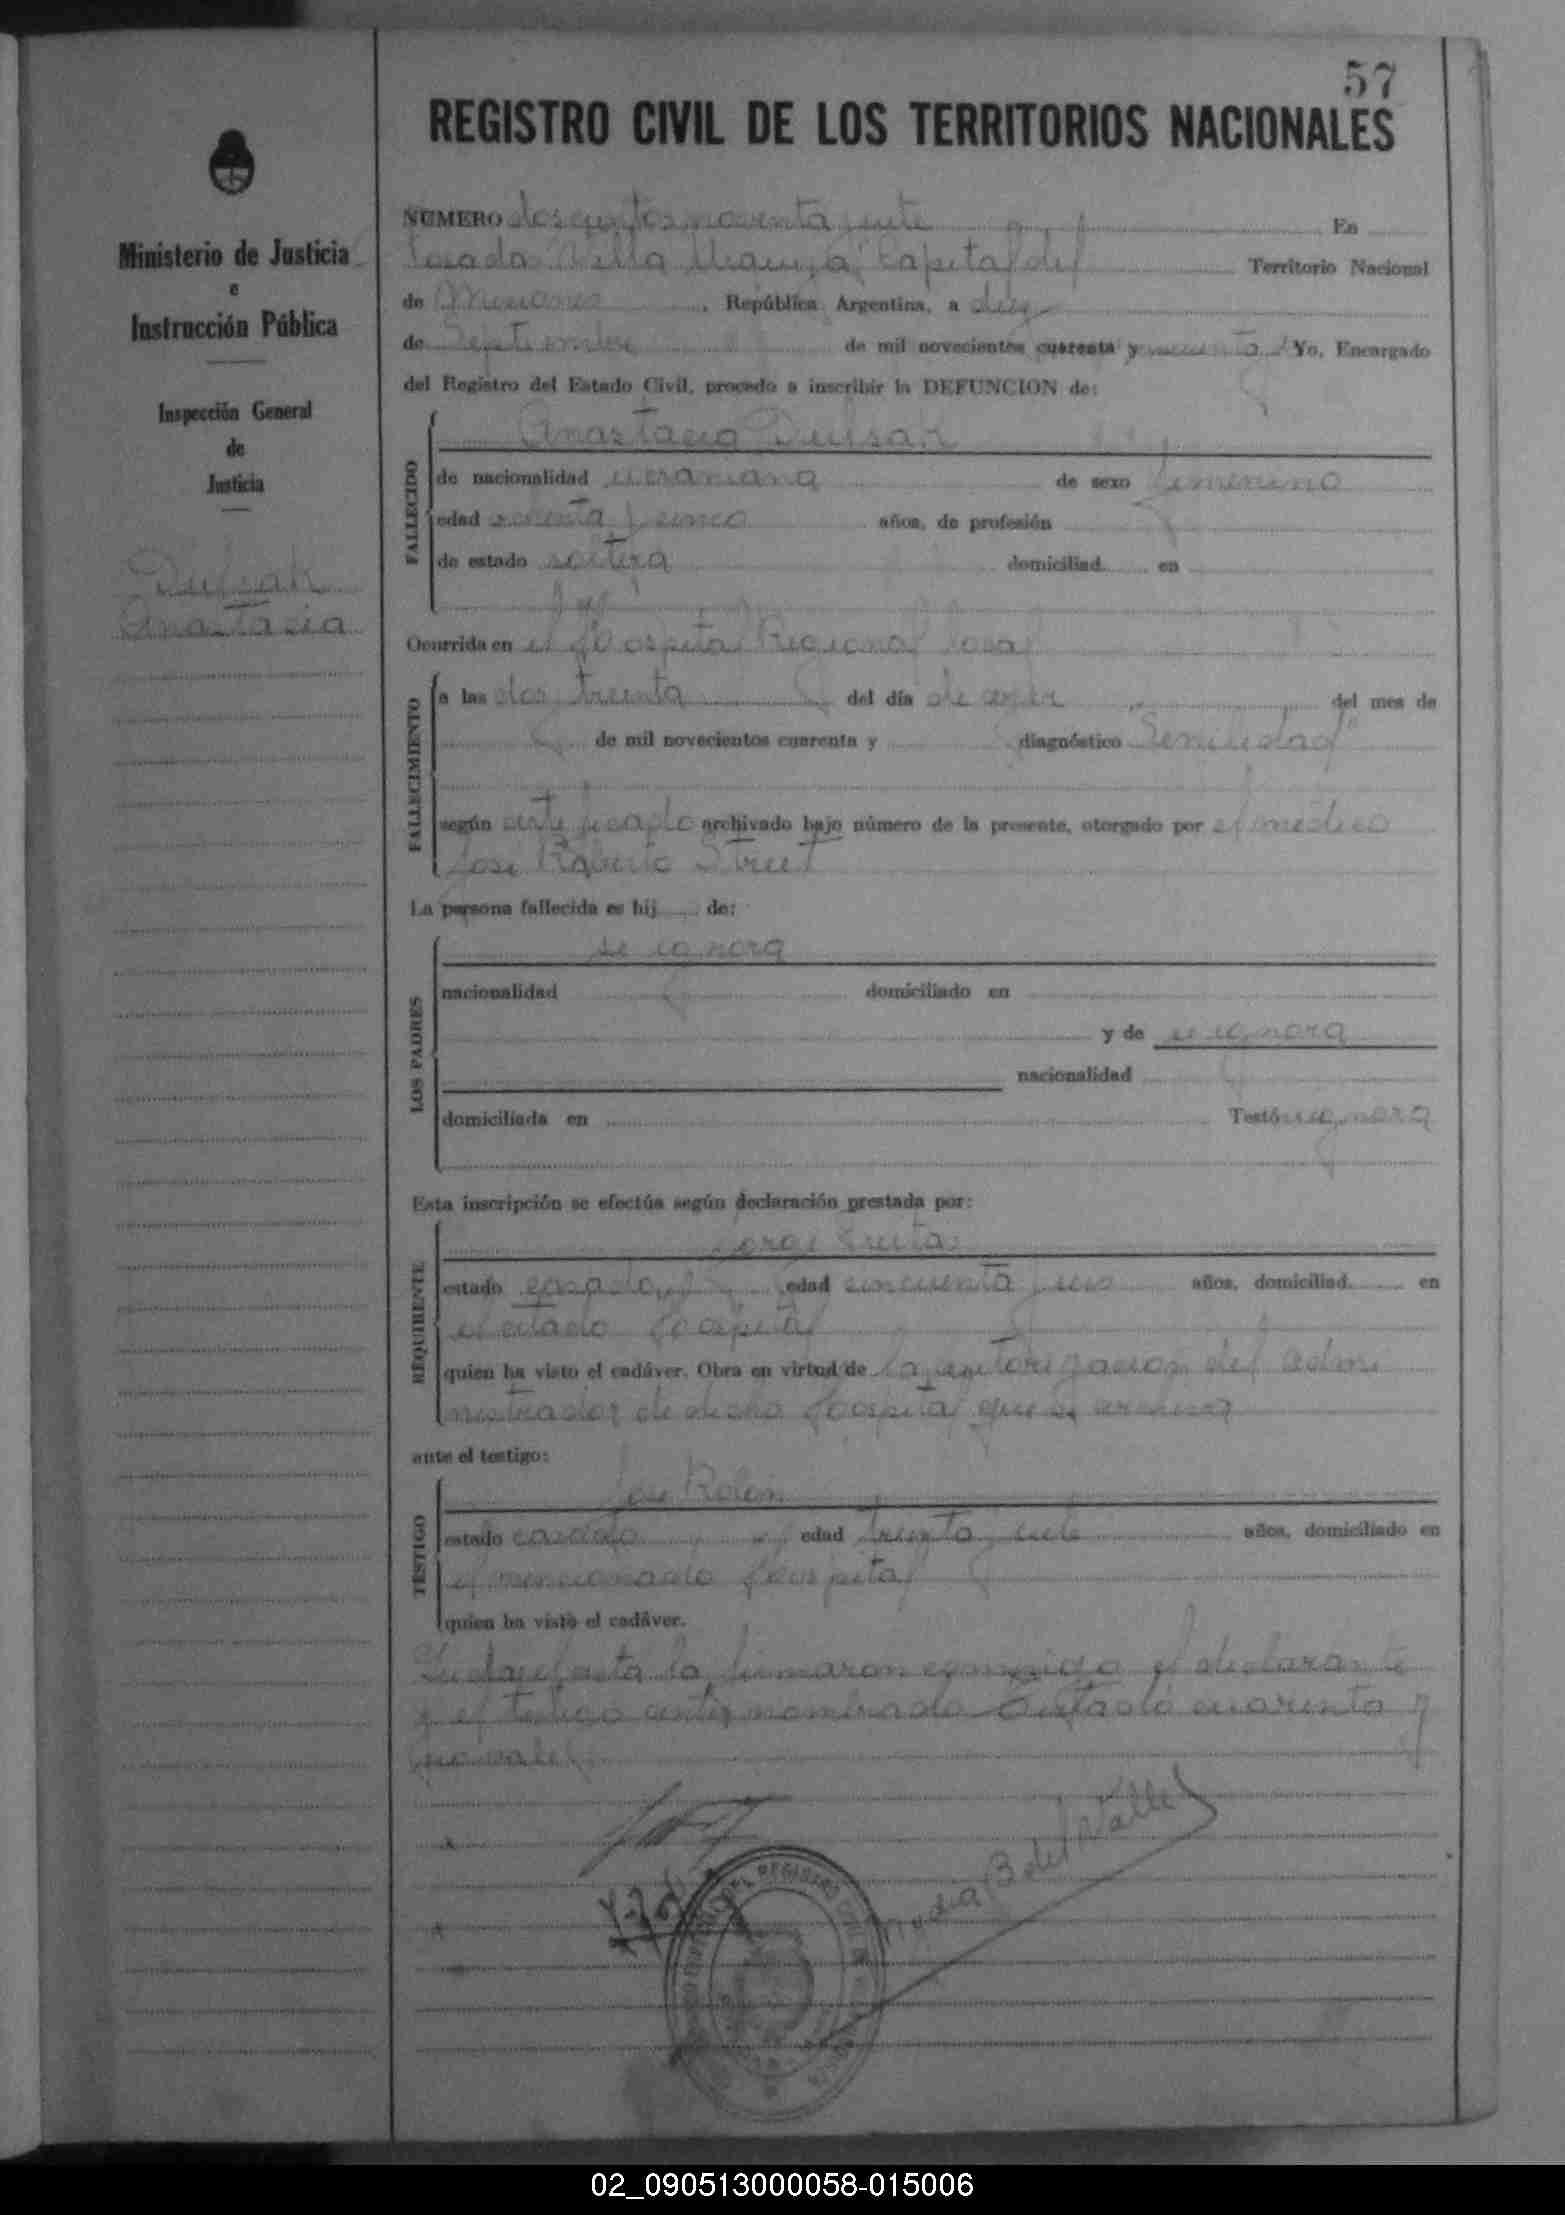 57
REGISTRO CIVIL DE LOS TERRITORIOS NACIONALES
Ministerio de Justicia
e
Instrucción Pública
Inspección General
de
Justicia
Anastacia
NUMERO doscientos noventa siete En
Posada Villa Urquiza Capital del Territorio Nacional
de Misiones, República Argentina, a diez
de Septiembre de mil novecientos cuarenta y Yo, Encargado
del Registro del Estado Civil, procedo a inscribir la DEFUNCION de:
FALLECIDO
Anastacia
de nacionalidad ucraniana de sexo femenino
edad y cinco años, de profesión
de estado soltera domiciliad en
Ocurrida en el Hospital Regional local
FALLECIMIENTO
a las dos treinta del día de ayer del mes de
de mil novecientos cuarenta y diagnóstico "Senilidad"
según certificado archivado bajo número de la presente, otorgado por el médico
Jose Roberto Street
La persona fallecida es hij de:
LOS PADRES
se ignora
nacionalidad domiciliado en
y de se ignora
nacionalidad
domiciliada en Testó se ignora
Esta inscripción se efectúa según declaración prestada por:
REQUIRENTE
Jorge
estado casado edad cincuenta y años, domiciliad en
el citado Hospital
quien ha visto el cadáver. Obra en virtud de la autorizacion del admi
nistrador de dicho Hospital que se archiva
ante el testigo:
TESTIGO
Jose Rolon
estado casado edad treinta y años, domiciliado en
el mencionado Hospital
quien ha visto el cadáver.
Leida el acta la firmaron conmigo el declarante
y el testigo antes nombrado Testado cuarenta y
no vale
B del Valle
02_090513000058-015006